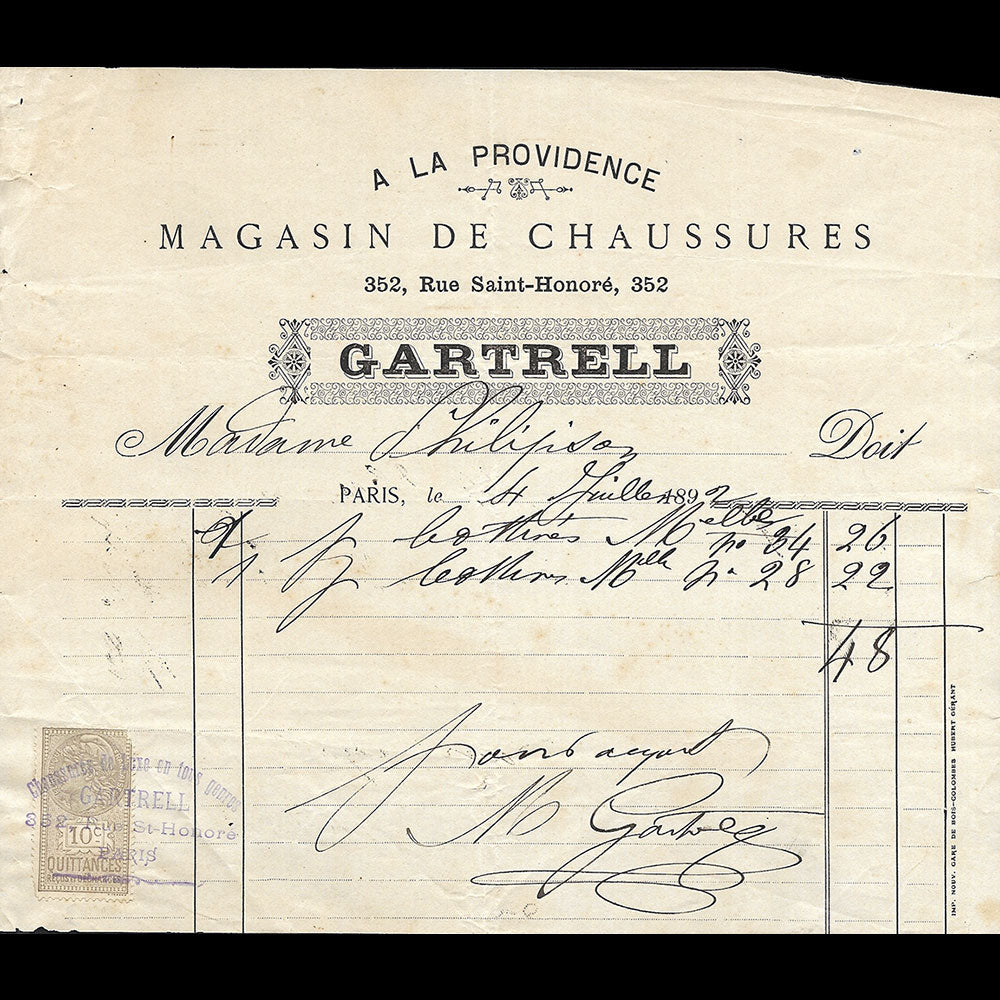 A LA PROVIDENCE
MAGASIN DE CHAUSSURES
352, Rue Saint-Honoré, 352
GARTRELL
Madame Philipson Doit
PARIS, le 4 Juillet 1892
bottines Melle no 34 26
1. p bottines Melle no 28 22
48
pour acquit
M Gartrell
Chaussures de luxe en tous genres
GARTRELL
352 Rue St-Honoré
PARIS
10c
QUITTANCES
REÇUS ET DÉCHARGES
IMP. NOUV. GARE DE BOIS-COLOMBES HUBERT GÉRANT